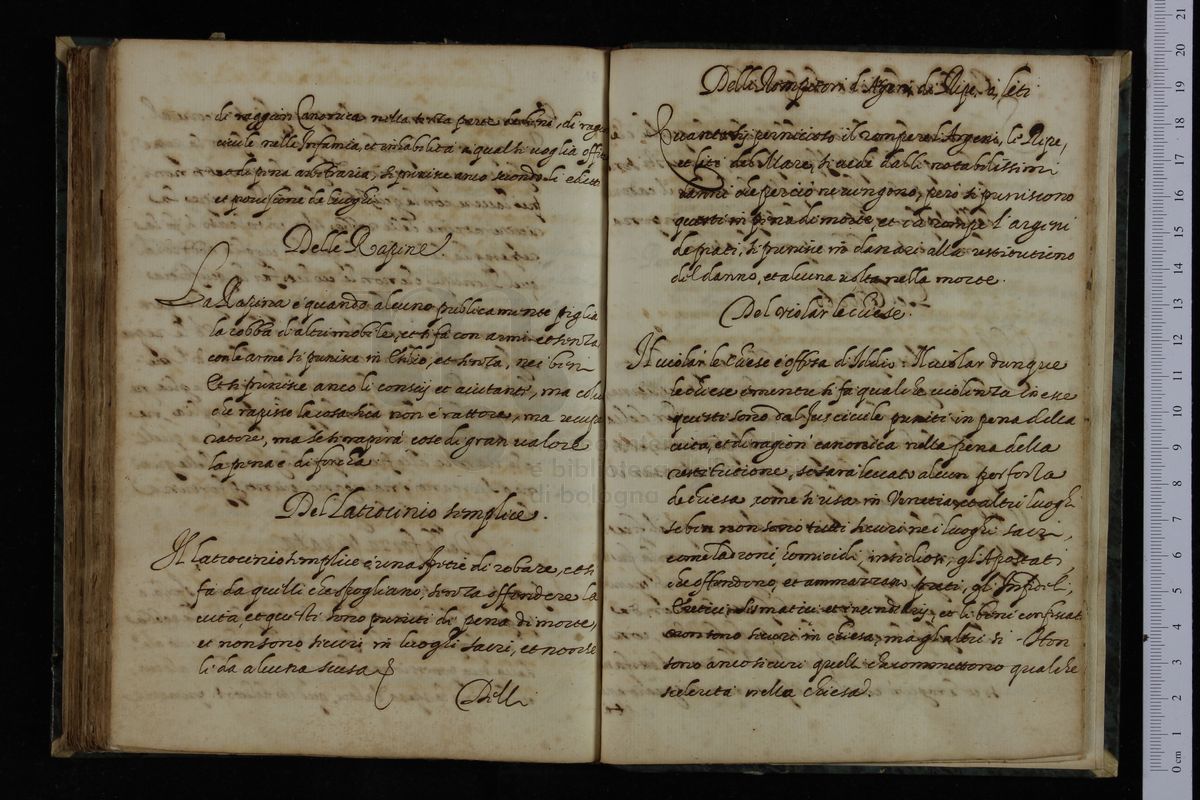 di raggion Canonica nella terza parte de beni, di ragi
civile nelle Infamia, et inhabilità a qual si voglia offi
et di pena arbitraria, si punisce anco secondo li editti
et provisione de luoghi
Delle Rapine.
La Rapina è quando alcuno publicamente piglia
la robba d'altri mobile, et si fa con armi et senza
con le arme si punisce in et senza, nei beni
Et si punisce anco li consij et aiutanti, ma colui
che rapisse la cosa sua non è rattore, ma recupe
ratore, ma se si rapirà cose di gran valore
la pena è di forcha
Del Latrocinio semplice.
Il latrocinio semplice è una spetie di robare, et si
fa da quelli che spogliano, senza offendere la
vita, et questi sono puniti di pena di morte,
et non sono sicuri in luoghi sacri, et non se
li da alcuna scusa
Delli
Delli Rompitori d'Argeni, de Ripe, et liti
Quanto sij pernicioso il rompere l'Argeni, le Ripe,
et liti del Mare, si vede dalli notabilissimi
danni che perciò ne vengono, però si puniscono
questi in pena di morte, et chi rompe l'argini
de prati, si punisce in danari alla restitutione
del danno, et alcuna volta nella morte.
Del violar le Chiese.
Il violar le Chiese è offesa d'Iddio: Il violar dunque
le chiese è mentre si fa qualche violenza in esse
questi sono dal Jus civile puniti in pena della
vita, et di ragion canonica nella pena della
restitutione, se sarà levato alcun per forza
de chiesa, come si usa in Venetia, et altri luoghi
se ben non sono tutti sicuri nei luoghi sacri,
come ladroni, homicidi, insidiosi, gli Apostati
che offendono, et ammazzano preti, gl'Infideli,
Eretici, sismatici et incendiarij, et li beni confiscati
non sono sicuri in chiesa, ma gl'altri si. Non
sono anco sicuri quelli che commettono qualche
scelerità nella Chiesa.
e biblioteca
di bologna